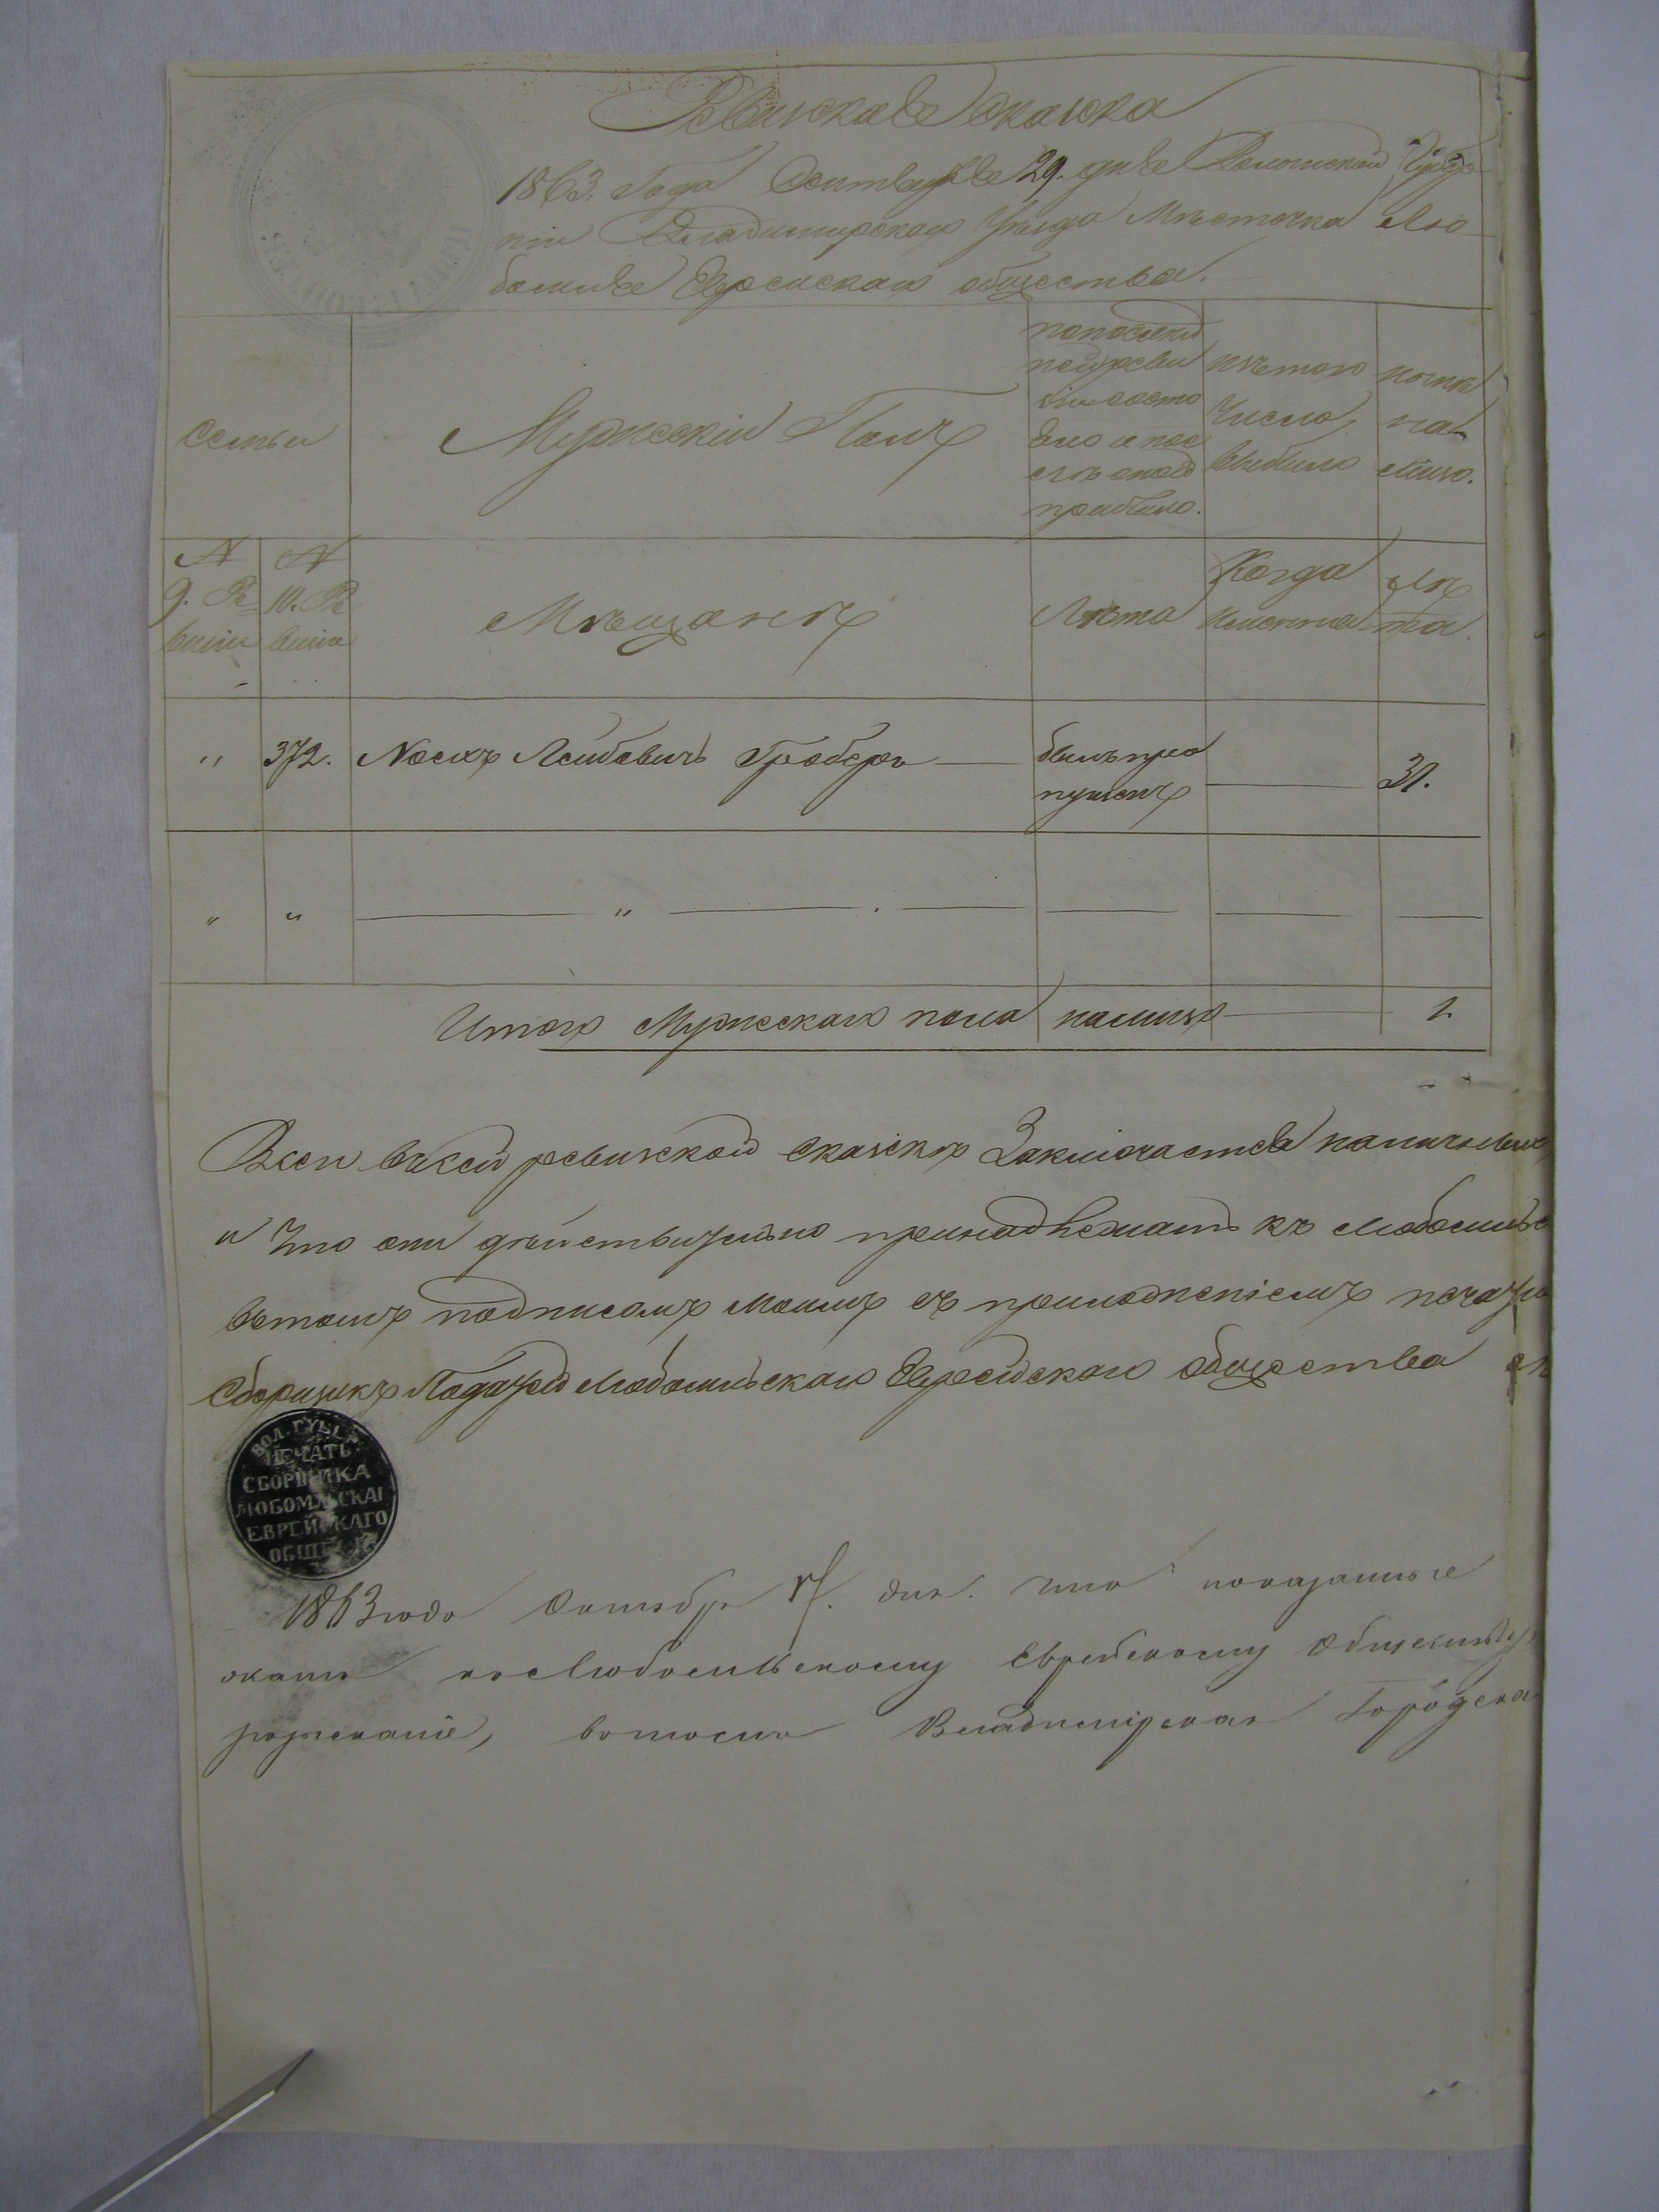 Ревизская сказка
1863. Года Октября 29. дня Волынской Губер
ніи Владимирскаго Уѣзда Мѣстечка Лю
бомля Еврейскаго общества.
Семьи
Мужескій Полъ
попослѣд
ней реви
зіи состо
яло и пос
лѣ оной
прибыло.
изъ того
Число
выбыло
нынѣ
на
лицо.
N
9. Ре
визіи
N
10. Ре
визіи
Мѣщанъ
Лѣта
Когда
именно
лѣ
та.
" 372. Лейбовичъ Гроберъ былъ про
пущенъ 31.
" " "
Итого Мужескаго пола налицо 1.
Всей въ сей ревизской сказкѣ Заключается наличныхъ
и что они дѣйствительно принадлежатъ къ Любомльс
вътомъ подписомъ моимъ съ приложеніемъ печати
Сборщикъ Податей Любомльскаго Еврейскаго общества
ВОЛ. ГУБЕР.
ПЕЧАТЬ
СБОРЩИКА
ЛЮБОМЛЬСКАГ
ЕВРЕЙСКАГО
ОБЩЕС
1863 года Октября дня. что показанные
Любомльскому Еврейскому Обществу
Владимірская Городска